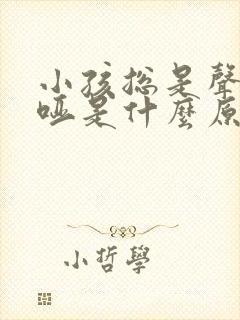 小孩總是聲
啞是什麼原
小哲學